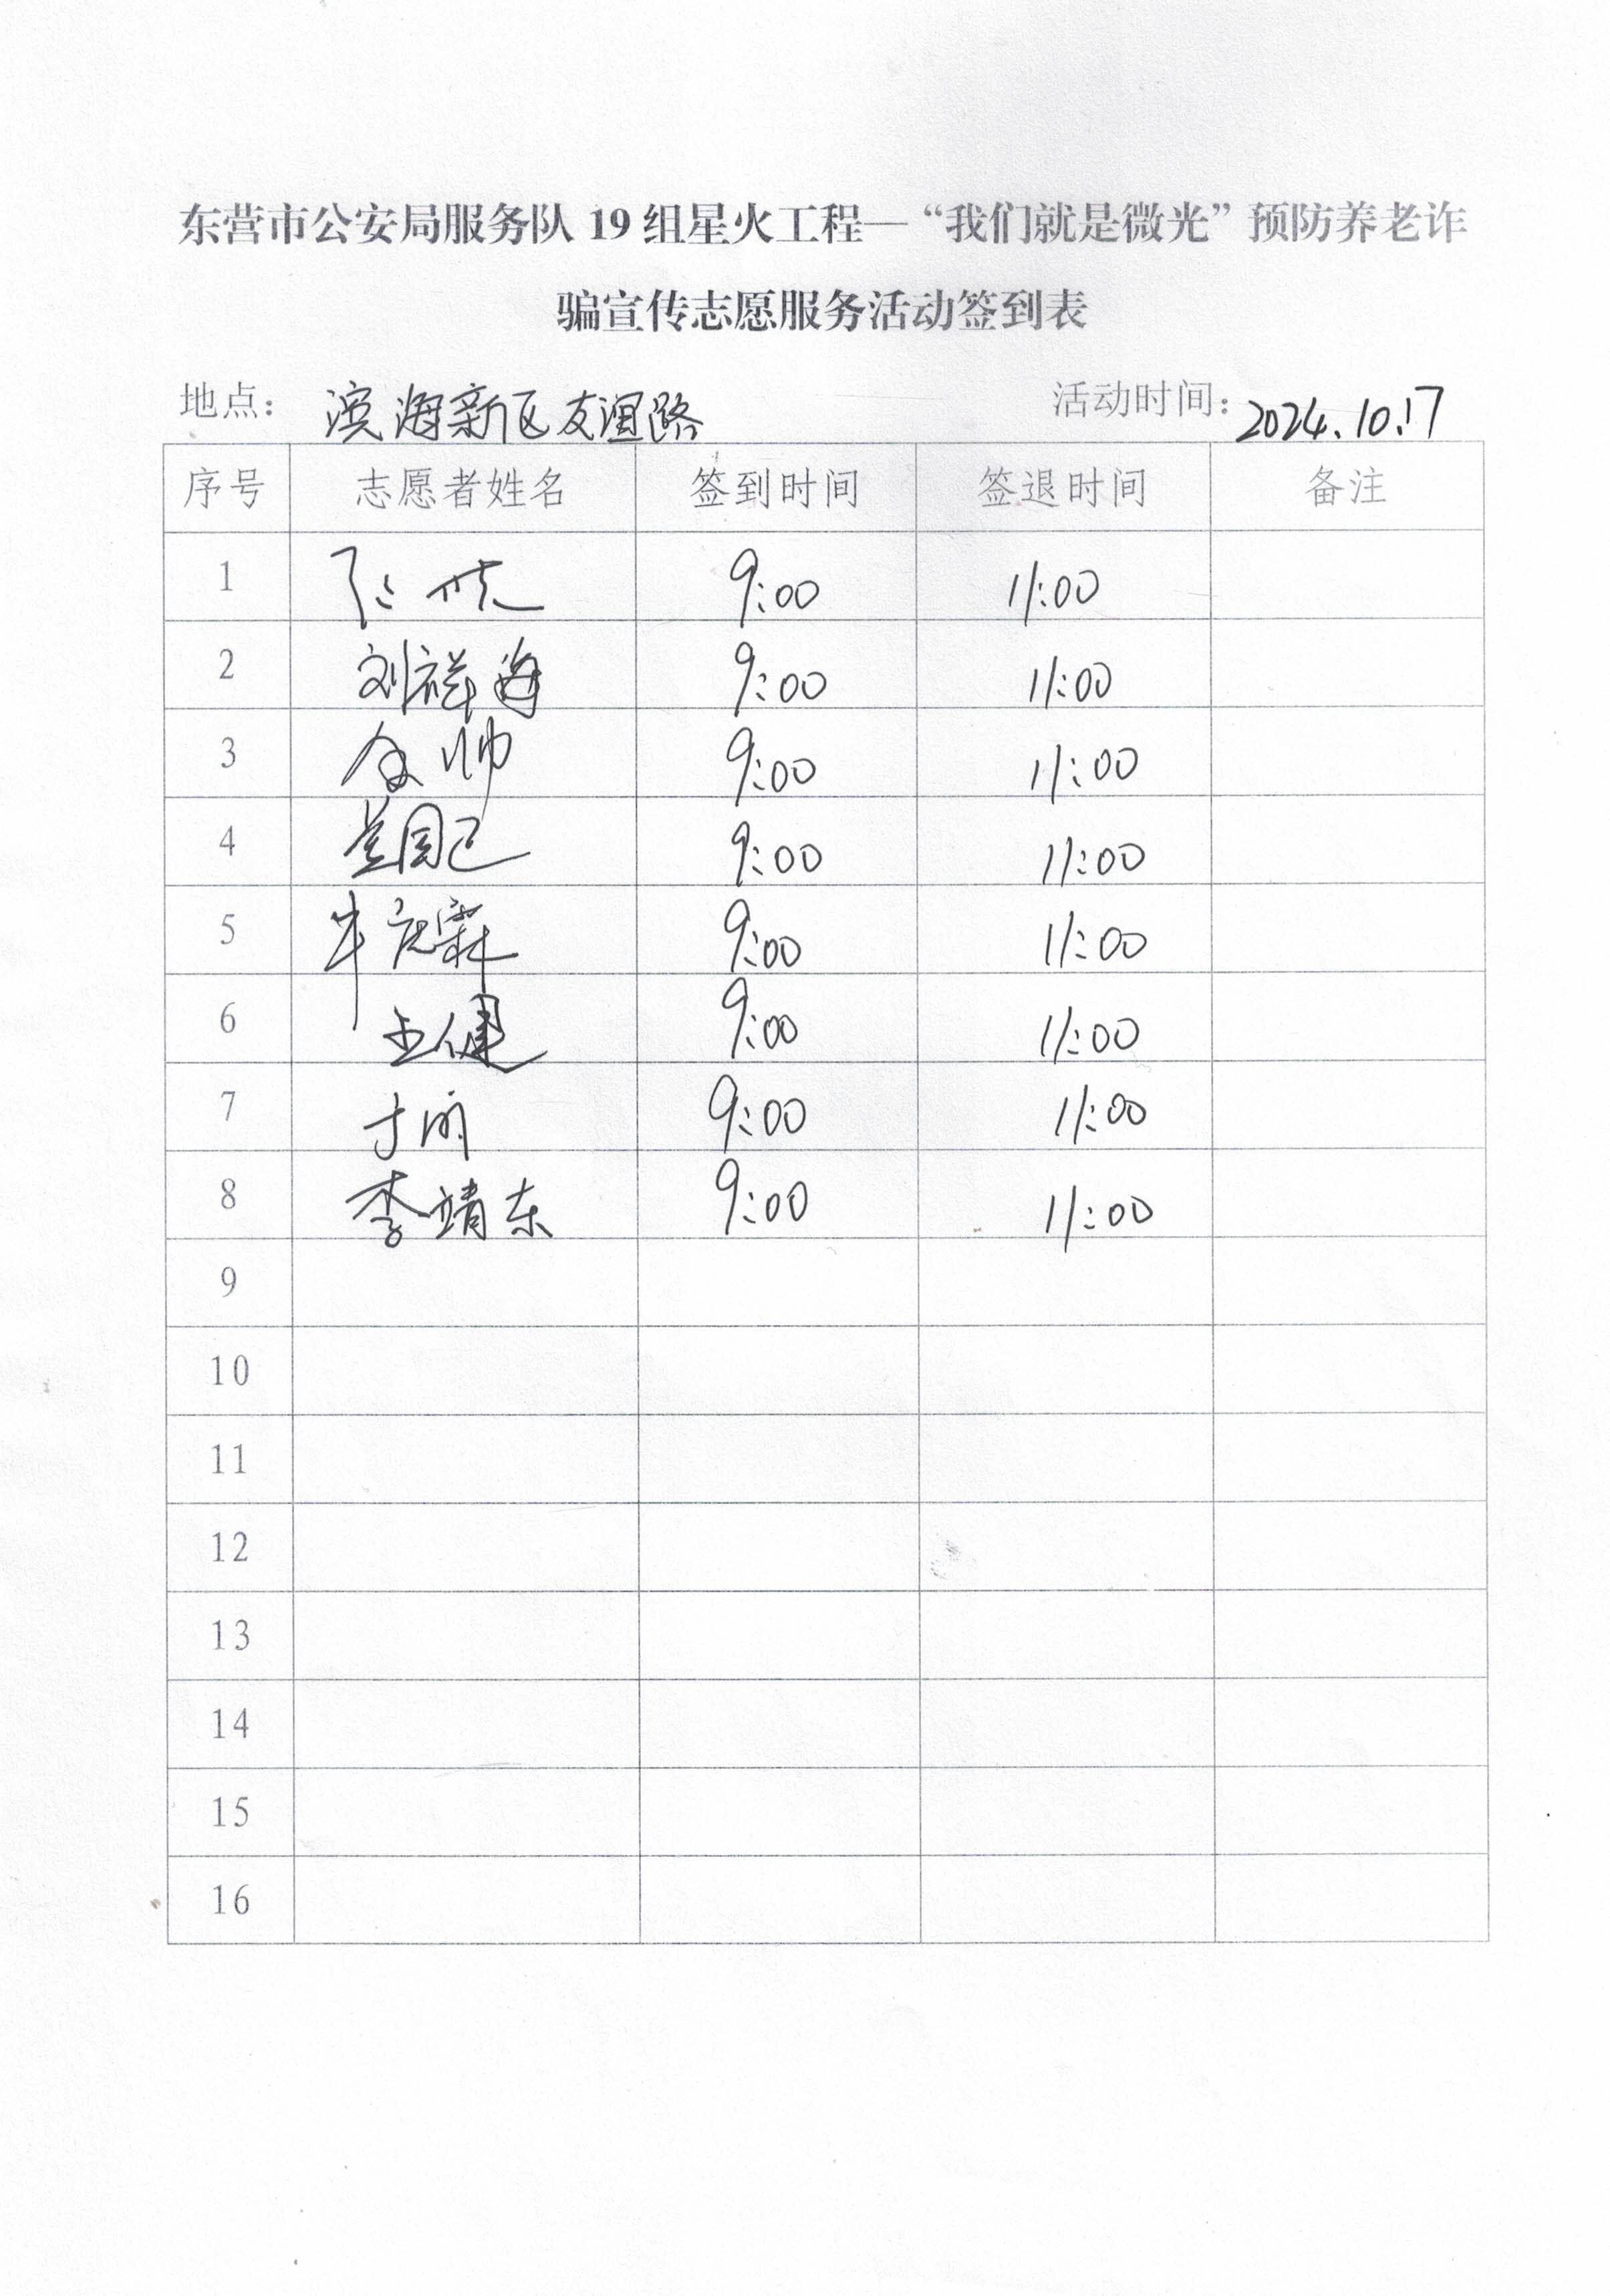 东营市公安局服务队 19 组星火工程—“我们就是微光”预防养老诈
骗宣传志愿服务活动签到表
地点： 滨海新区友谊路 活动时间：2024.10.17
序号 志愿者姓名 签到时间 签退时间 备注
1 9:00 11:00
2 刘祥海 9:00 11:00
3 帅 9:00 11:00
4 9:00 11:00
5 牛庆霖 9:00 11:00
6 王健 9:00 11:00
7 于 9:00 11:00
8 李靖东 9:00 11:00
9
10
11
12
13
14
15
16